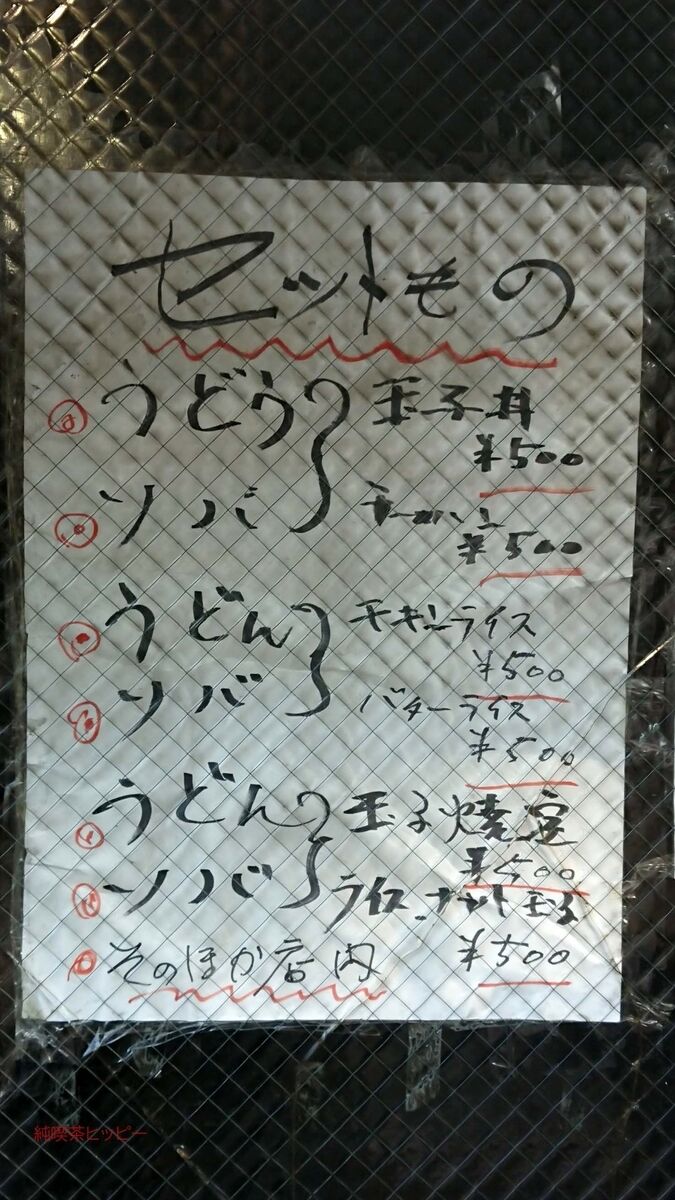 セットもの
うどう 玉子丼
¥500
ソバ
¥500
うどん チキンライス
¥500
ソバ バターライス
¥500
うどん 玉子焼定
¥500
ソバ ライス.ナット玉子
¥500
そのほか店内
純喫茶ヒッピー